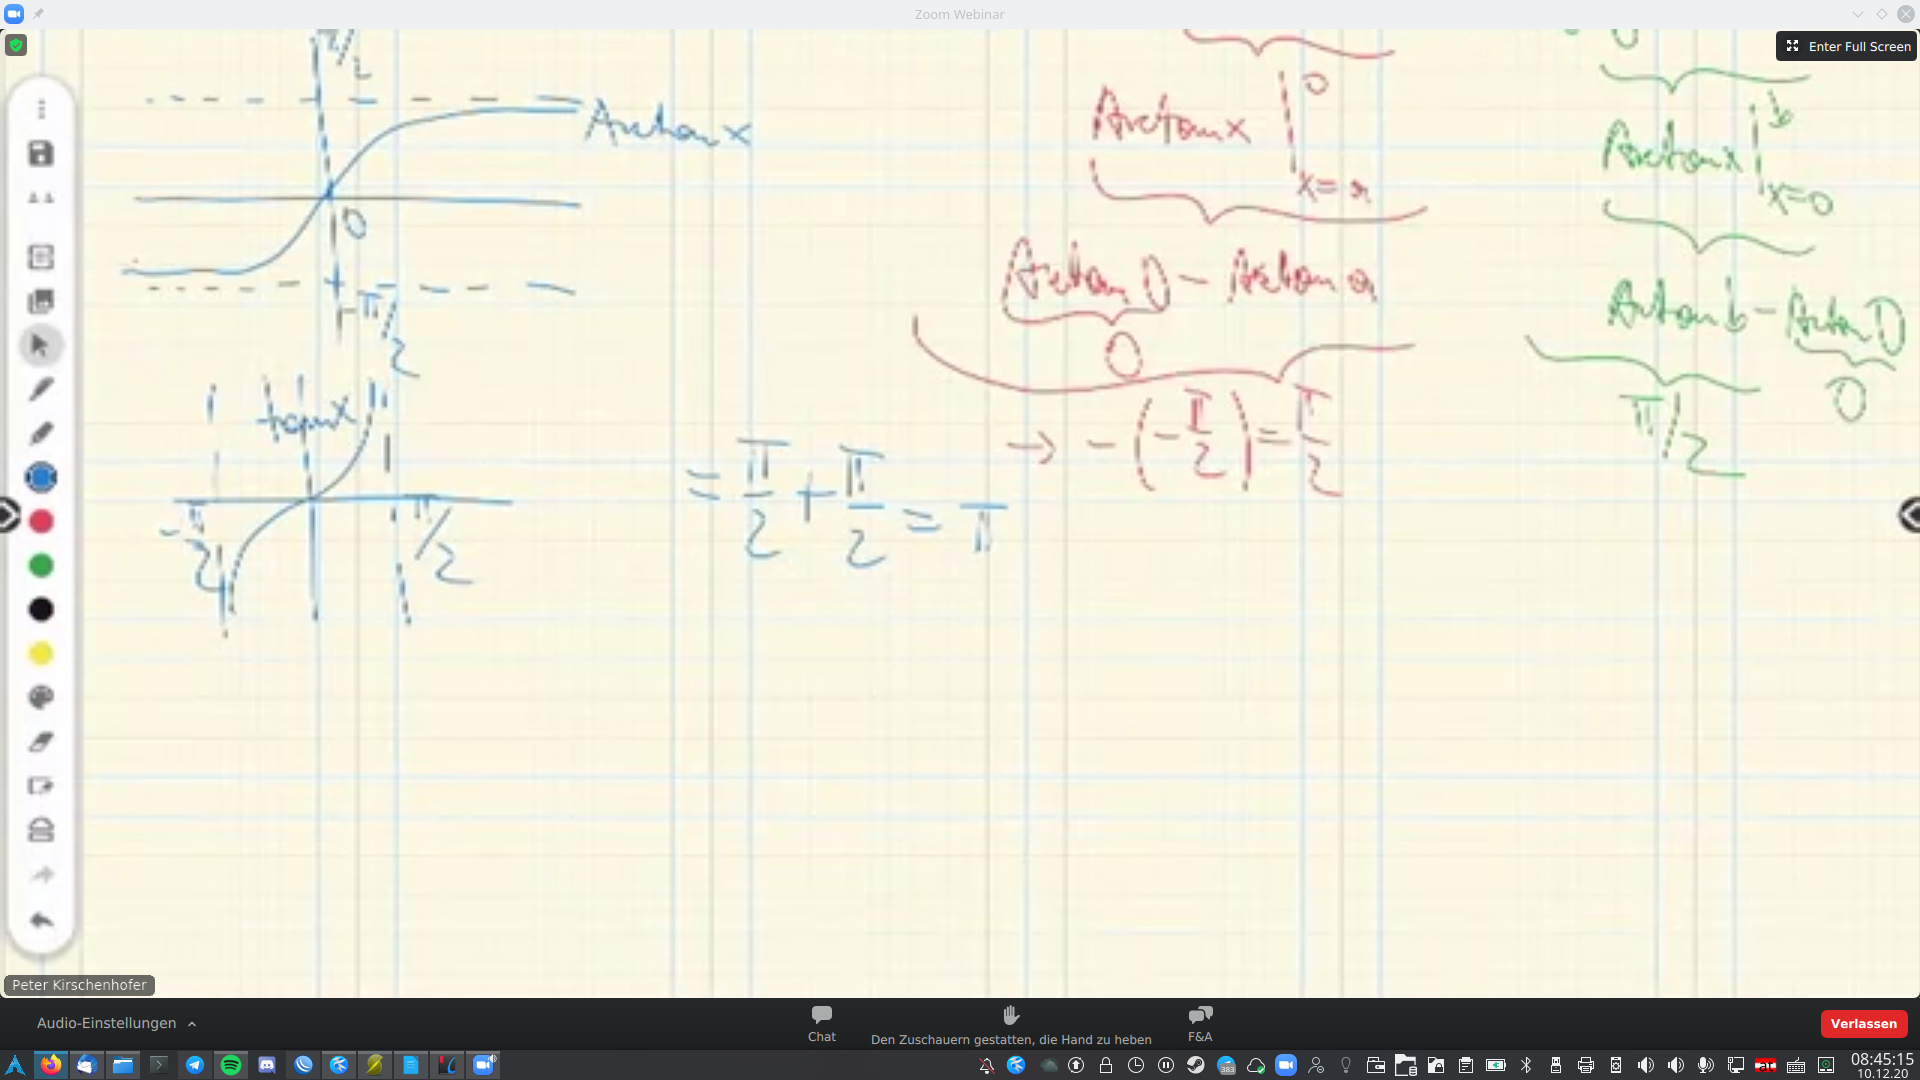 Zoom Webinar
Enter Full Screen
π/2
Arctan x
0
-π/2
tan x
-π/2
π/2
= π/2 + π/2 = π
0
Arctan x
x=a
Arctan 0 - Arctan a
0
→ - (-π/2) = π/2
b
Arctan x
x=0
Arctan b - Arctan 0
0
π/2
Peter Kirschenhofer
Audio-Einstellungen
Chat
Den Zuschauern gestatten, die Hand zu heben
F&A
Verlassen
383
08:45:15
10.12.20